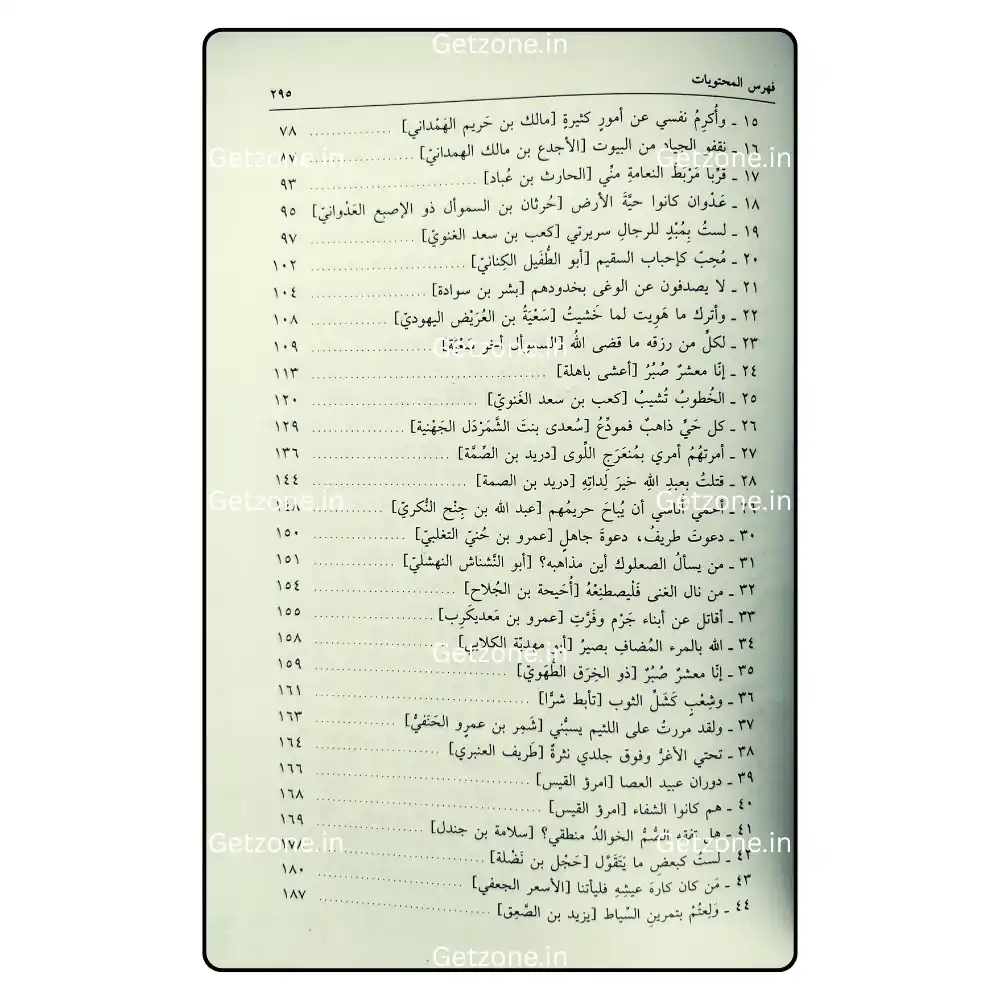 Getzone.in
فهرس المحتويات ٢٩٥
١٥ ـ وأُكرِمُ نفسي عن أمورٍ كثيرةٍ [مالك بن حَريم الهَمْداني] ٧٨
١٦ ـ نقفو الجياد من البيوت [الأجدع بن مالك الهمدانيّ] ٨٧
Getzone.in Getzone.in
١٧ ـ قرِّبا مَرْبَطَ النعامةِ منِّي [الحارث بن عُباد] ٩٣
١٨ ـ عَدْوان كانوا حيَّةَ الأرض [حُرثان بن السموأل ذو الإصبع العَدْوانيّ] ٩٥
١٩ ـ لستُ بِمُبْدٍ للرجالِ سريرتي [كعب بن سعد الغنويّ] ٩٧
٢٠ ـ مُحِبّ كإحباب السقيم [أبو الطُّفَيل الكِنانيّ] ١٠٢
٢١ ـ لا يصدفون عن الوغى بخدودهم [بشر بن سوادة] ١٠٤
٢٢ ـ وأترك ما هَوِيت لما خَشيتُ [سَعْيَةُ بن العُرَيْض اليهوديّ] ١٠٨
٢٣ ـ لكلِّ من رزقه ما قضى اللهُ [السموأل أخو سَعْيَة] ١٠٩
Getzone.in
٢٤ ـ إنّا معشرٌ صُبُرُ [أعشى باهلة] ١١٣
٢٥ ـ الخُطوبُ تُشيبُ [كعب بن سعد الغَنويّ] ١٢٠
٢٦ ـ كل حَيٍّ ذاهبٌ فمودِّعُ [سُعدى بنتَ الشَّمَرْدَل الجَهْنية] ١٢٩
٢٧ ـ أمرتهُمُ أمري بمُنعَرَجِ اللِّوى [دريد بن الصِّمَّة] ١٣٦
٢٨ ـ قتلتُ بعبدِ الله خيرَ لِداتِهِ [دريد بن الصمة] ١٤٤
Getzone.in Getzone.in
٢٩ ـ أحمي أناسي أن يُباحَ حريمُهم [عبد الله بن جِنْح النُّكريّ] ١٤٨
٣٠ ـ دعوتَ طريفُ، دعوةَ جاهلٍ [عمرو بن حُنيّ التغلبيّ] ١٥٠
٣١ ـ من يسألُ الصعلوك أين مذاهبه؟ [أبو النَّشناش النهشليّ] ١٥١
٣٢ ـ من نال الغنى فَلْيصطنِعْهُ [أُحَيحة بن الجُلاح] ١٥٤
٣٣ ـ أقاتل عن أبناء جَرْم وفَرَّتِ [عمرو بن مَعديكَرِب] ١٥٥
٣٤ ـ الله بالمرء المُضافِ بصيرُ [أبو مهديّة الكلابي] ١٥٨
Getzone.in
٣٥ ـ إنّا معشرٌ صُبُرٌ [ذو الخِرَق الطُّهَويّ] ١٥٩
٣٦ ـ وشِعْبٍ كَشَلِّ الثوب [تأبط شرًّا] ١٦١
٣٧ ـ ولقد مررتُ على اللئيم يسبُّني [شَمِر بن عمرٍو الحَنَفيُّ] ١٦٣
٣٨ ـ تحتي الأغرُّ وفوق جلدي نثرةٌ [طَريف العنبري] ١٦٤
٣٩ ـ دوران عبيد العصا [امرؤ القيس] ١٦٦
٤٠ ـ هم كانوا الشفاء [امرؤ القيس] ١٦٨
٤١ ـ هل تفقه الصُّمُّ الخوالدُ منطقي؟ [سلامة بن جندل] ١٦٩
Getzone.in Getzone.in
٤٢ ـ لستُ كبعضِ ما يَتَقَوَّل [حَجْل بن نَضْلة]
٤٣ ـ مَن كان كارهَ عيشِهِ فليأتنا [الأسعر الجعفي] ١٨٠
٤٤ ـ وَلِعتُمْ بتمرينِ السِّياط [يزيد بن الصَّعِق] ١٨٧
Getzone.in